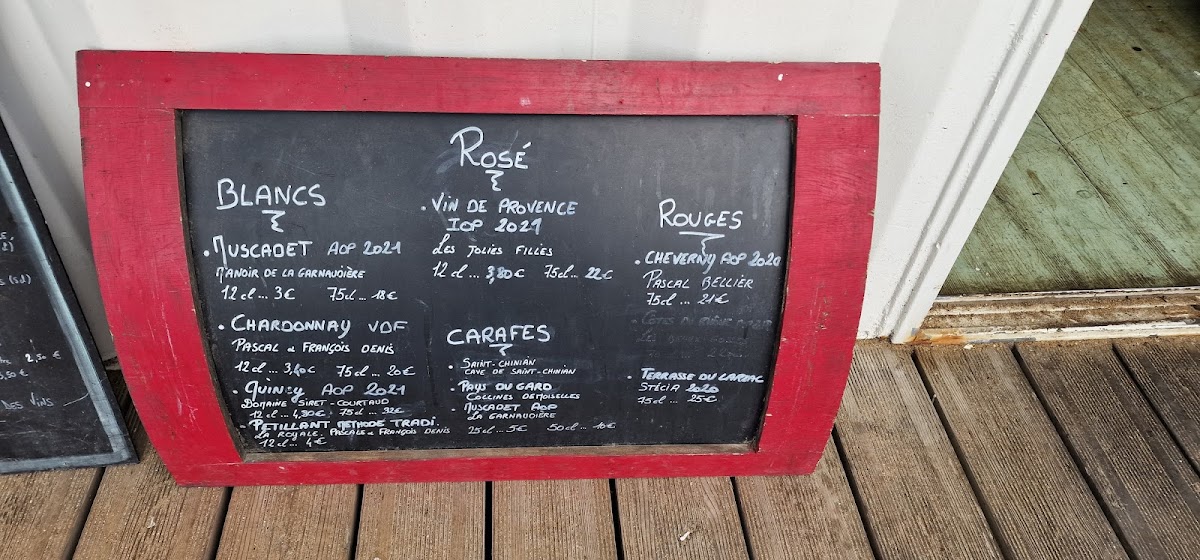 BLANCS
• MUSCADET AOP 2021
MANOIR DE LA GARNAUDIÈRE
12 cl... 3€ 75cl... 18€
• CHARDONNAY VDF
PASCAL & FRANÇOIS DENIS
12 cl... 3,40€ 75cl... 20€
• QUINCY AOP 2021
DOMAINE SIRET-COURTAUD
12 cl... 4,30€ 75cl... 32€
• PETILLANT MÉTHODE TRADI.
LA ROYALE. PASCALE & FRANÇOIS DENIS
12 cl... 4€
ROSÉ
• VIN DE PROVENCE
IGP 2021
LES JOLIES FILLES
12 cl... 3,80€ 75cl... 22€
CARAFES
• SAINT-CHINIAN
CAVE DE SAINT-CHINIAN
• PAYS DU GARD
COLLINES DEMOISELLES
• MUSCADET AOP
LA GARNAUDIÈRE
25cl... 5€ 50cl... 10€
ROUGES
• CHEVERNY AOP 2020
PASCAL BELLIER
75cl... 21€
• TERRASSE DU LARZAC
STÉCIA 2020
75cl... 25€
2,50 €
DES VINS